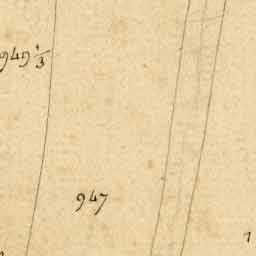 949 1/3
947
1